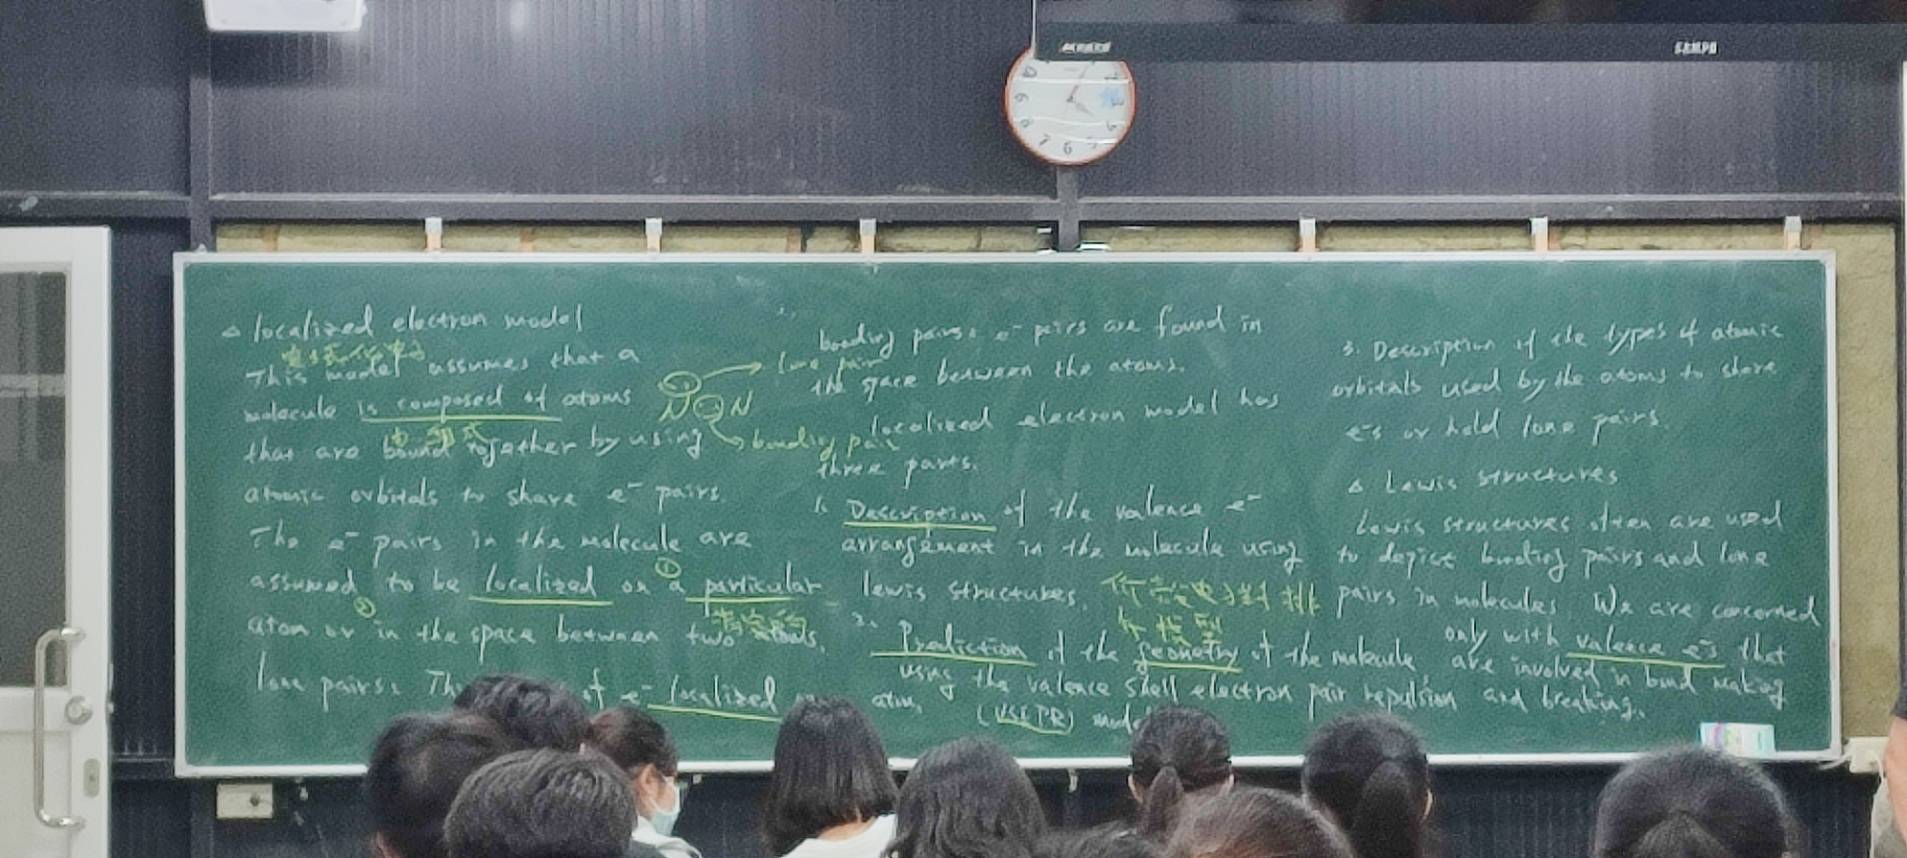 SAMPO
△ localized electron model
This model assumes that a
molecule is composed of atoms
that are bound together by using
atomic orbitals to share e⁻ pairs.
The e⁻ pairs in the molecule are
assumed to be localized on ① a particular
② atom or in the space between two atoms.
lone pairs: of e⁻ localized atom.
lone pair
N N
bonding pair
bonding pairs: e⁻ pairs are found in
the space between the atoms.
localized electron model has
three parts.
1. Description of the valence e⁻
arrangement in the molecule using
lewis structures.
2. Prediction of the geometry of the molecule
using the valence shell electron pair repulsion
(VSEPR) model
3. Description of the types of atomic
orbitals used by the atoms to share
e⁻s or hold lone pairs.
△ Lewis structures
Lewis structures often are used
to depict bonding pairs and lone
pairs in molecules. We are concerned
only with valence e⁻s that
are involved in bond making
and breaking.